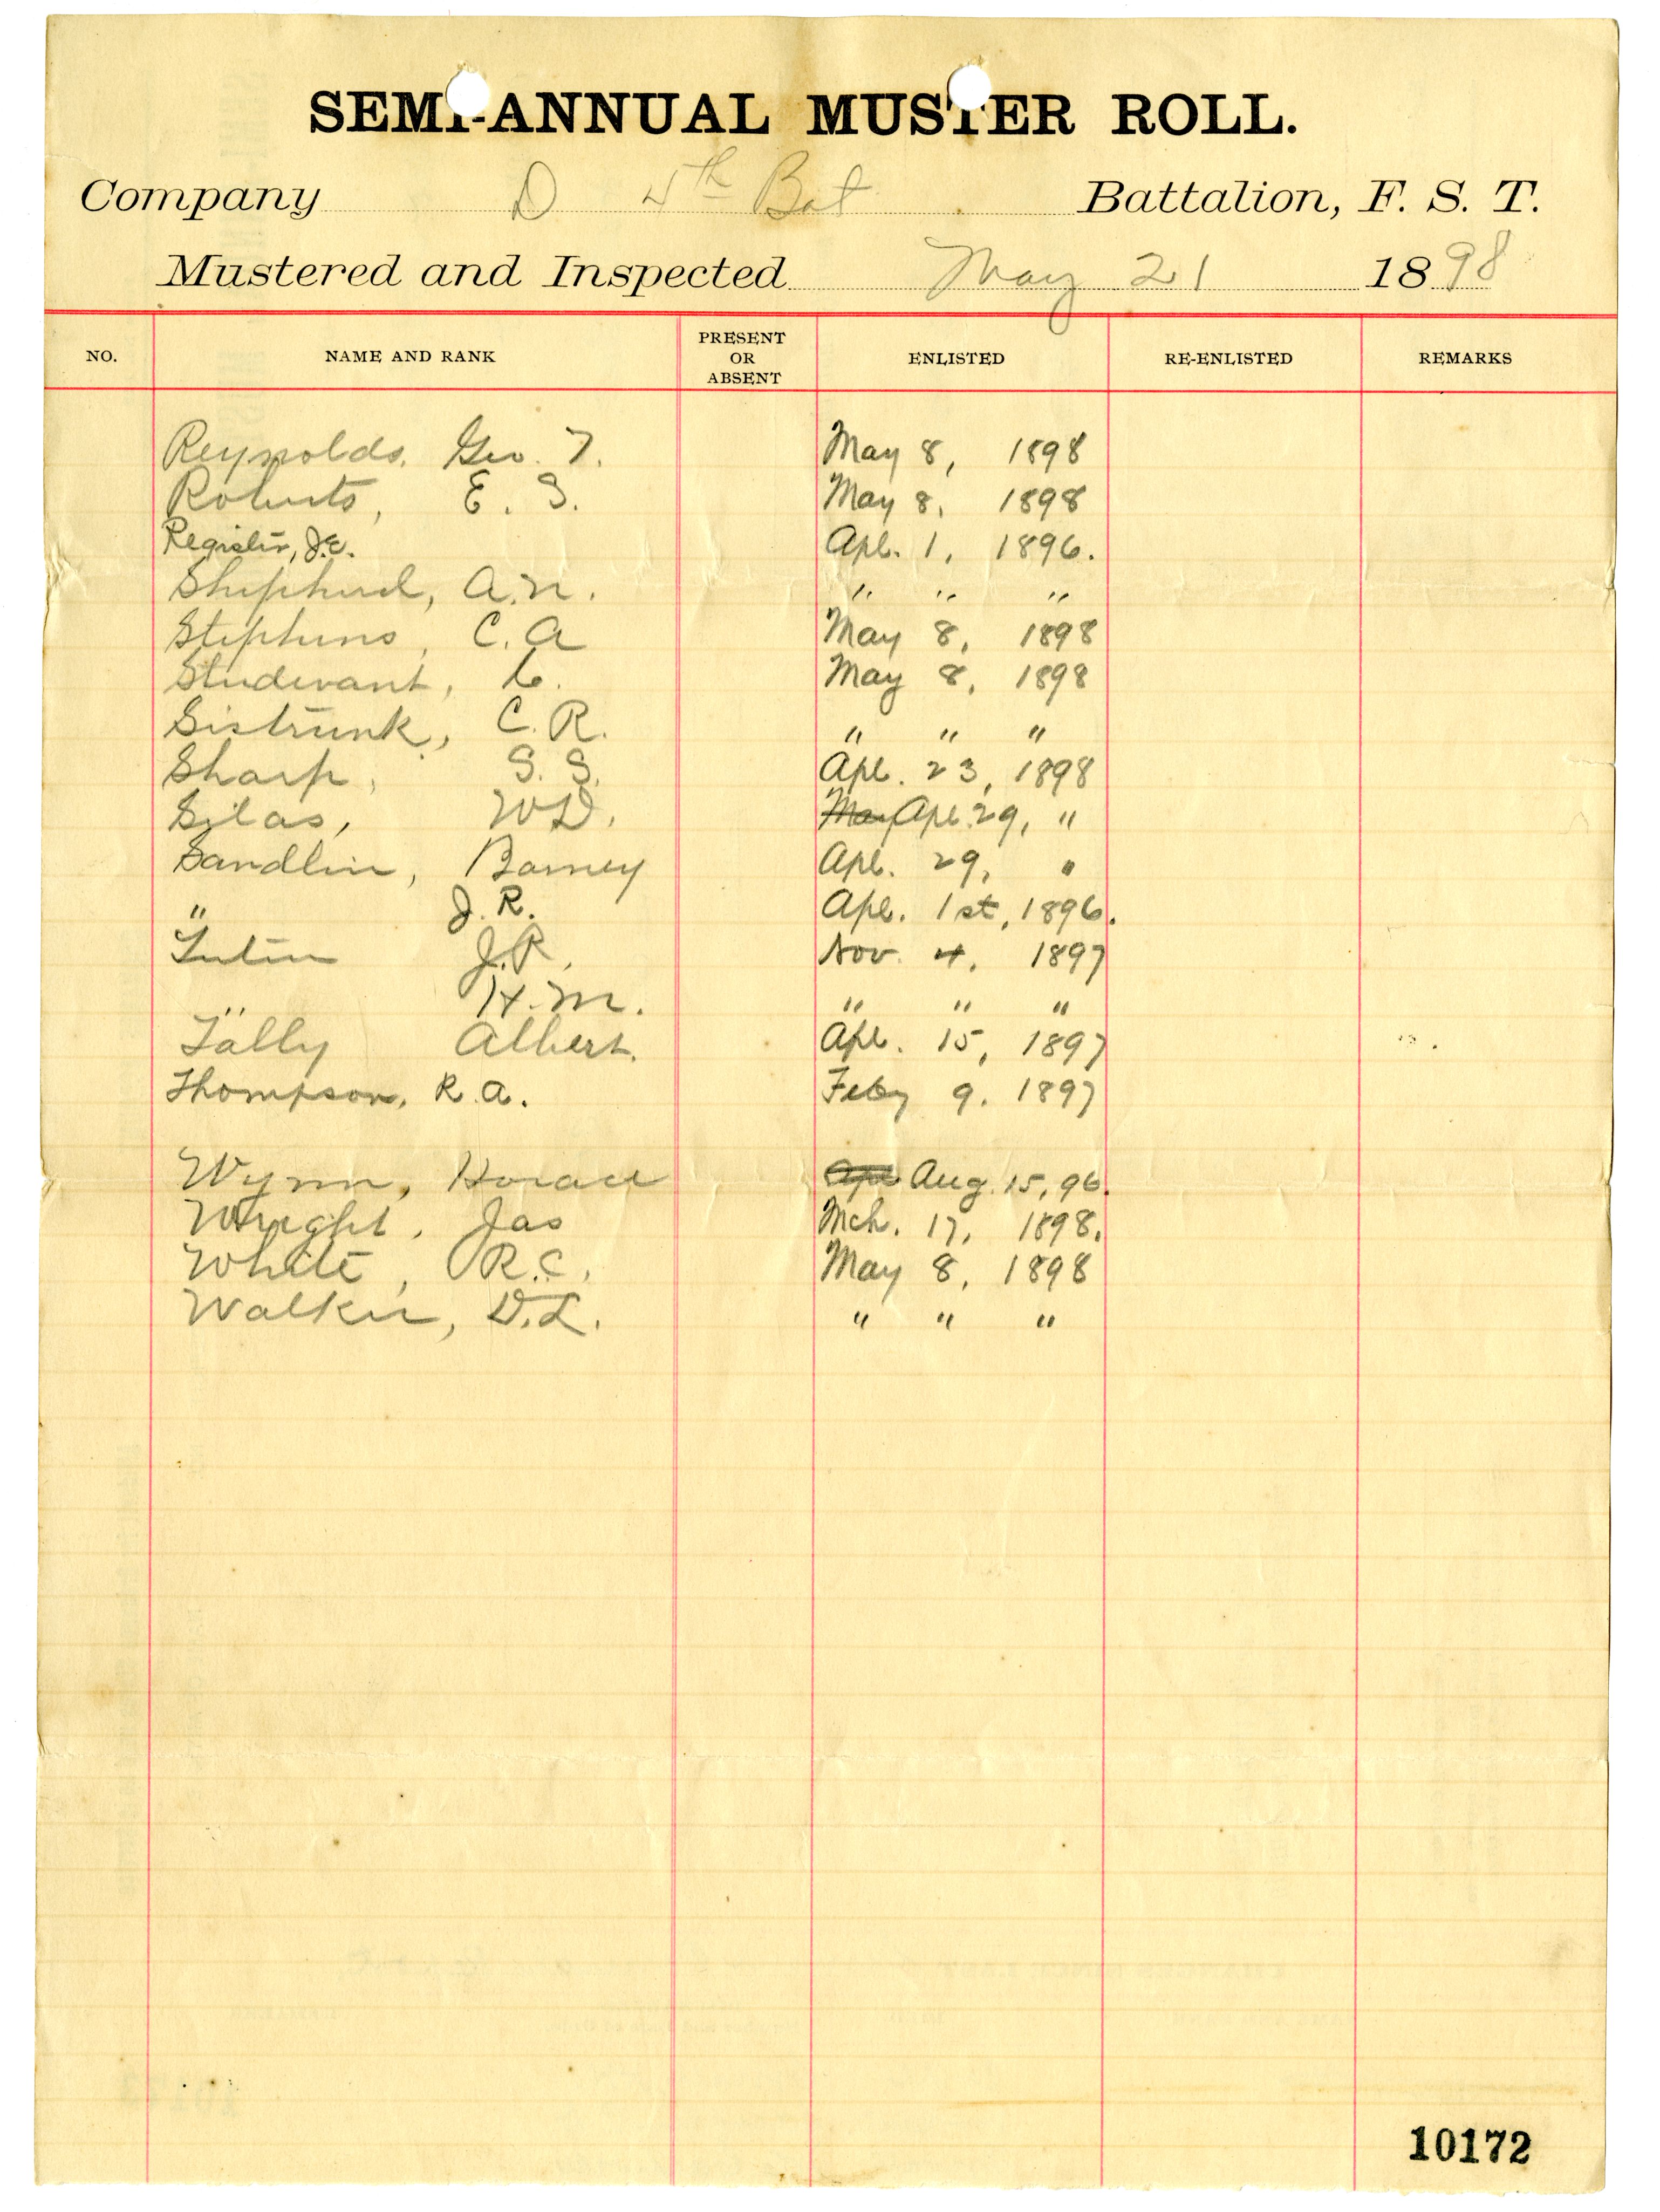 SEMI-ANNUAL MUSTER ROLL.
Company D 4th Bat Battalion, F. S. T.
Mustered and Inspected May 21 1898
NO. NAME AND RANK PRESENT OR ABSENT ENLISTED RE-ENLISTED REMARKS
Reynolds, Geo. T. May 8, 1898
Roberts, E. S. May 8, 1898
Register, J.E. Apl. 1, 1896.
Shepherd, A.N. " " "
Stephens, C. A May 8, 1898
Studevant, C. May 8, 1898
Sistrunk, C. R. " " "
Sharp, S. S. Apl. 23, 1898
Silas, W.D. May Apl. 29, "
Sandlin, Barney Apl. 29, "
" J. R. Apl. 1st, 1896.
J.R. Nov. 4, 1897
" H. M. " " "
Tally Albert. Apl. 15, 1897
Thompson, R. A. Feby 9. 1897
Wynn, Horace Apl Aug. 15, 96.
Wright, Jas Mch. 17, 1898.
White, R.C. May 8, 1898
Walker, D.L. " " "
10172